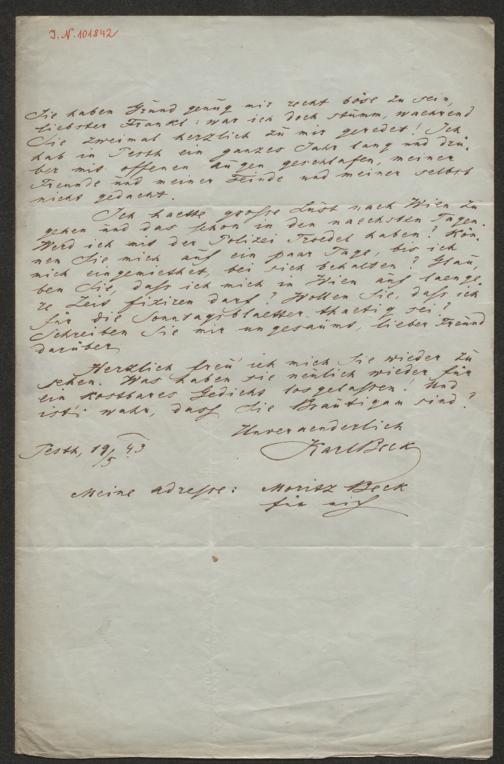 J. N. 101842
Sie haben Grund genug mir recht böse zu sein,
liebster Frankl: war ich doch stumm, waehrend
Sie zweimal herzlich zu mir geredet! Ich
hab in Pesth ein ganzes Jahr lang und drü-
ber mit offenen Augen geschlafen, meiner
Freunde und meiner Feinde und meiner selbst
nicht gedacht.
Ich haette grosse Lust nach Wien zu
gehen und das schon in den naechsten Tagen.
Werd ich mit der Polizei Troedel haben? Kön-
nen Sie mich auf ein paar Tage, bis ich
mich eingemiethet, bei sich behalten? Glau-
ben Sie, dass ich mich in Wien auf laenge-
re Zeit fixiren darf? Wollen Sie, dass ich
für die Sonntagsblaetter thaetig sei?
Schreiben Sie mir ungesäumt, lieber Freund
darüber
Herzlich freu' ich mich Sie wieder zu
sehen. Was haben sie neülich wieder für
ein kostbares Gedicht losgelassen! Und
ist's wahr, dass Sie Bräutigam sind?
Unveraenderlich
Karl Beck
Pesth, 19/5 43
Meine Adresse: Moritz Beck
für mich